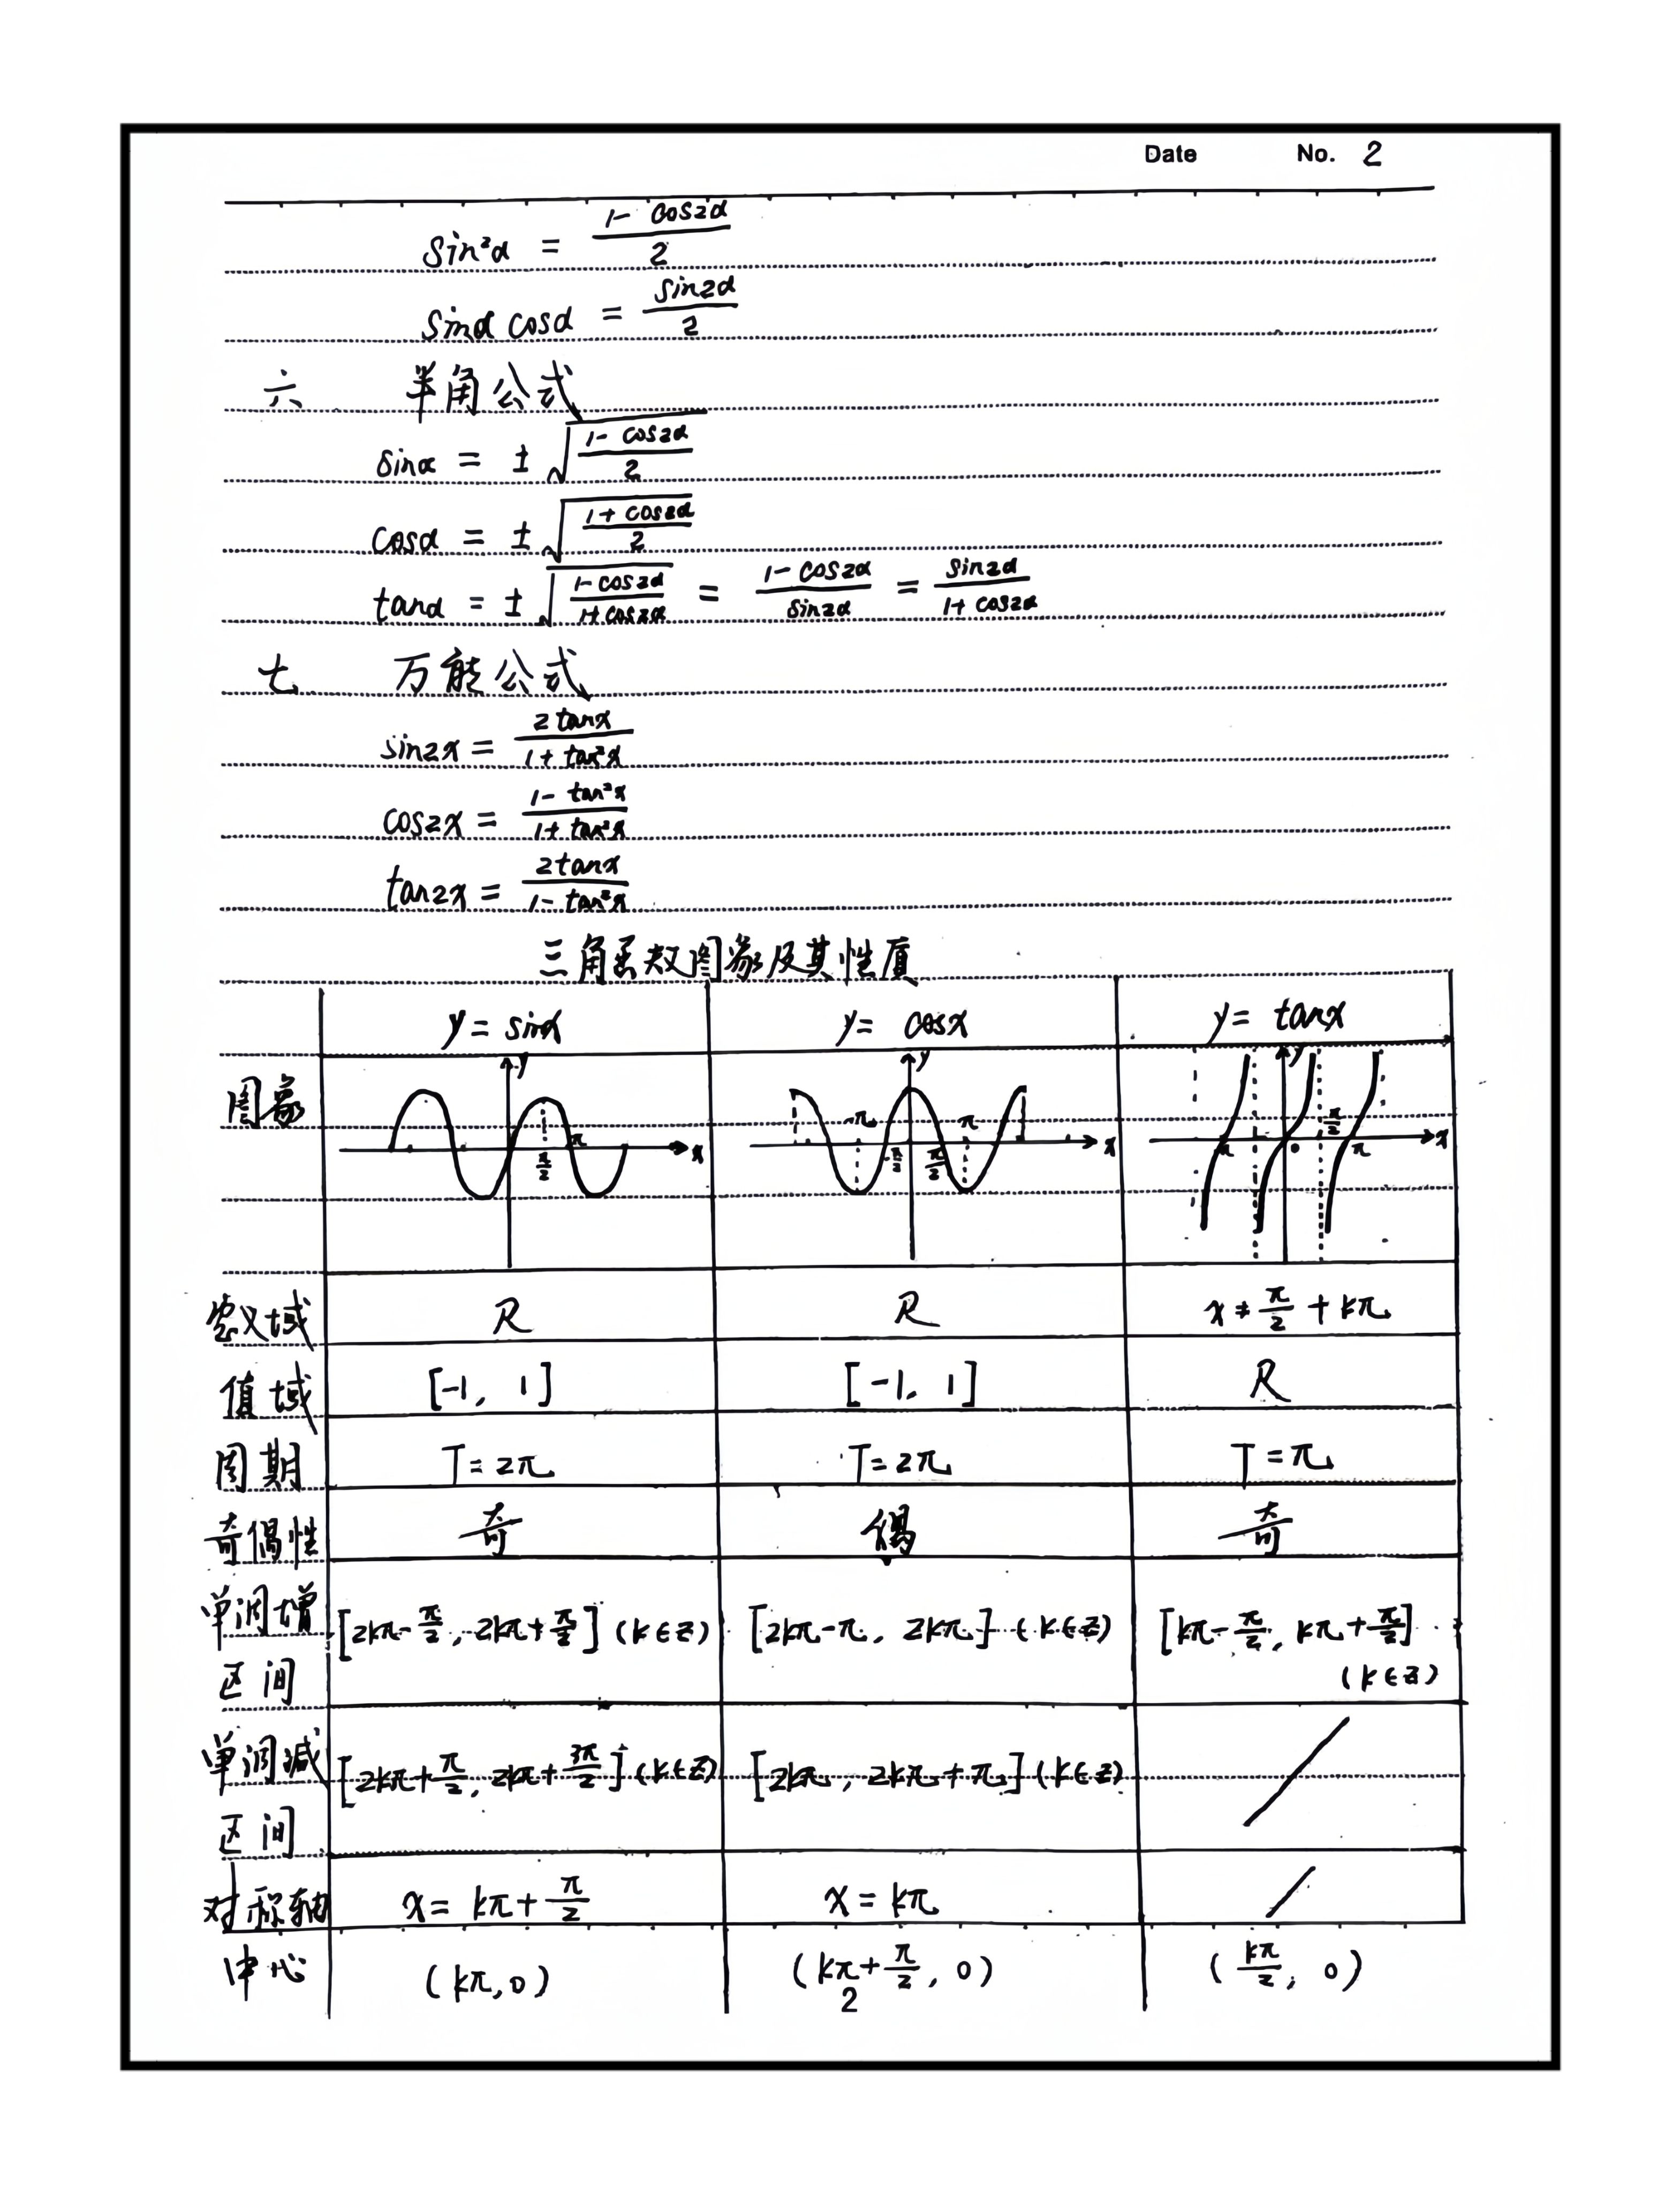 Date No. 2
sin²α = (1 - cos2α)/2
sinα cosα = sin2α/2
六 半角公式
sinα = ±√((1 - cos2α)/2)
cosα = ±√((1 + cos2α)/2)
tanα = ±√((1 - cos2α)/(1 + cos2α)) = (1 - cos2α)/sin2α = sin2α/(1 + cos2α)
七 万能公式
sin2x = 2tanx/(1 + tan²x)
cos2x = (1 - tan²x)/(1 + tan²x)
tan2x = 2tanx/(1 - tan²x)
三角函数图象及其性质
y = sinx y = cosx y = tanx
图象 y x π/2 π y x -π -π/2 π/2 π y x π 0 π/2 π
定义域 R R x ≠ π/2 + kπ
值域 [-1, 1] [-1, 1] R
周期 T = 2π T = 2π T = π
奇偶性 奇 偶 奇
单调增区间 [2kπ - π/2, 2kπ + π/2] (k∈Z) [2kπ - π, 2kπ] (k∈Z) [kπ - π/2, kπ + π/2] (k∈Z)
单调减区间 [2kπ + π/2, 2kπ + 3π/2] (k∈Z) [2kπ, 2kπ + π] (k∈Z) /
对称轴 x = kπ + π/2 x = kπ /
中心 (kπ, 0) (kπ + π/2, 0) (kπ/2, 0)
2